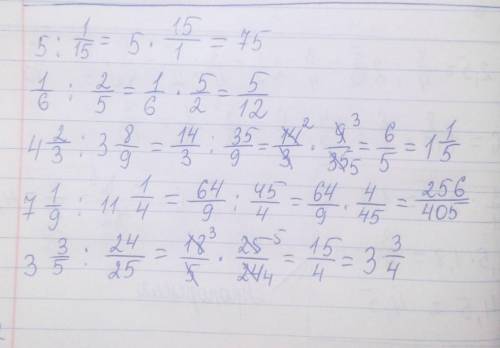 5 : 1/15 = 5 · 15/1 = 75
1/6 : 2/5 = 1/6 · 5/2 = 5/12
4 2/3 : 3 8/9 = 14/3 : 35/9 = 14 2/3 · 9 3/35 5 = 6/5 = 1 1/5
7 1/9 : 11 1/4 = 64/9 : 45/4 = 64/9 · 4/45 = 256/405
3 3/5 : 24/25 = 18 3/5 · 25 5/24 4 = 15/4 = 3 3/4